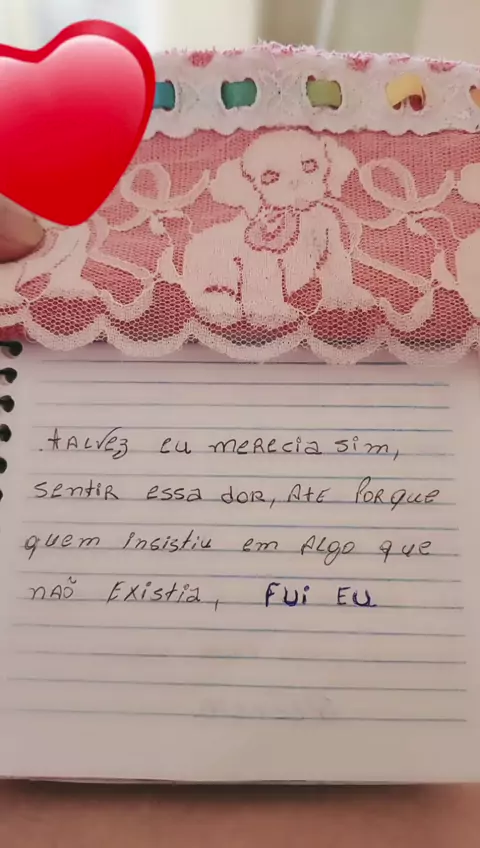 .tALVEz eu meRecia sim,
sentir essa doR, AtE PoRque
quem insistiu em Algo que
nAõ Existia, FUi EU